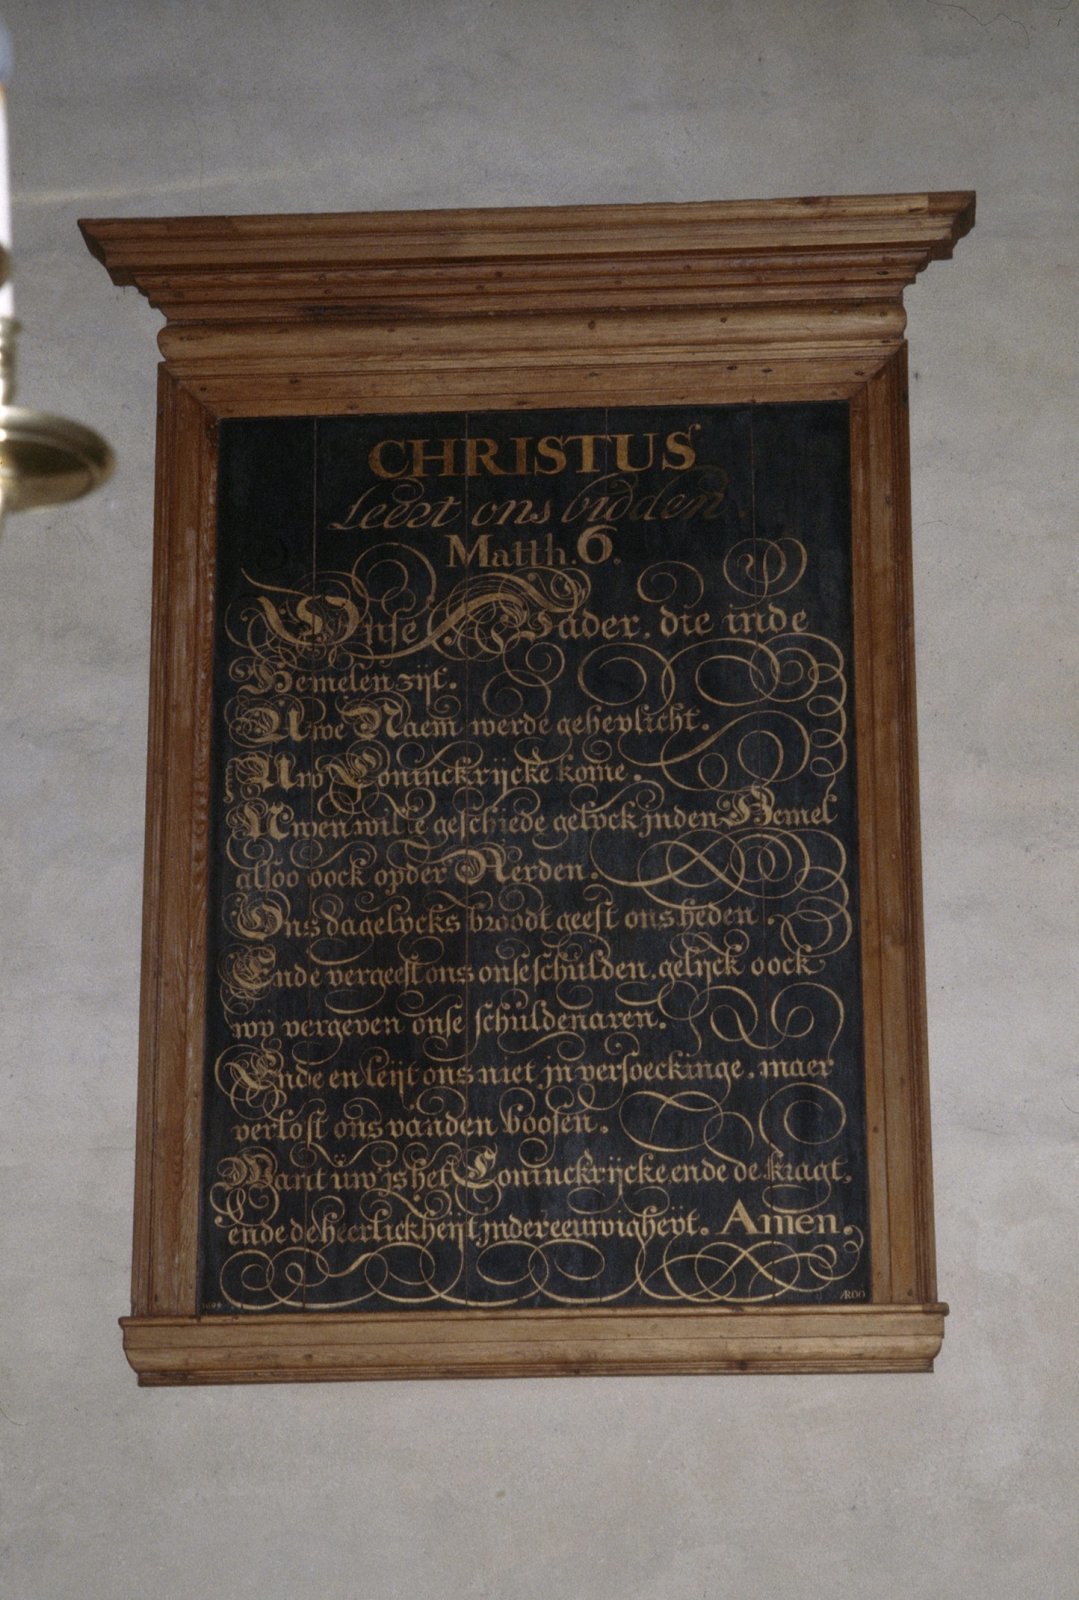 CHRISTUS
Leert ons bidden.
Matth. 6.
Onse Vader, die inde
Hemelen zijt.
Uwe Naem werde geheylicht.
Uw Coninckrijcke kome.
Uwen wille geschiede gelyck jnden Hemel
alsoo oock opder Aerden.
Ons dagelycks broodt geeft ons heden.
Ende vergeeft ons onse schulden, gelijck oock
wy vergeven onse schuldenaren.
Ende en leijt ons niet jn versoeckinge, maer
verlost ons vanden boosen.
Want uw js het Coninckrijcke, ende de kragt,
ende de heerlickheijt jnder eeuwigheyt. Amen.
ROO